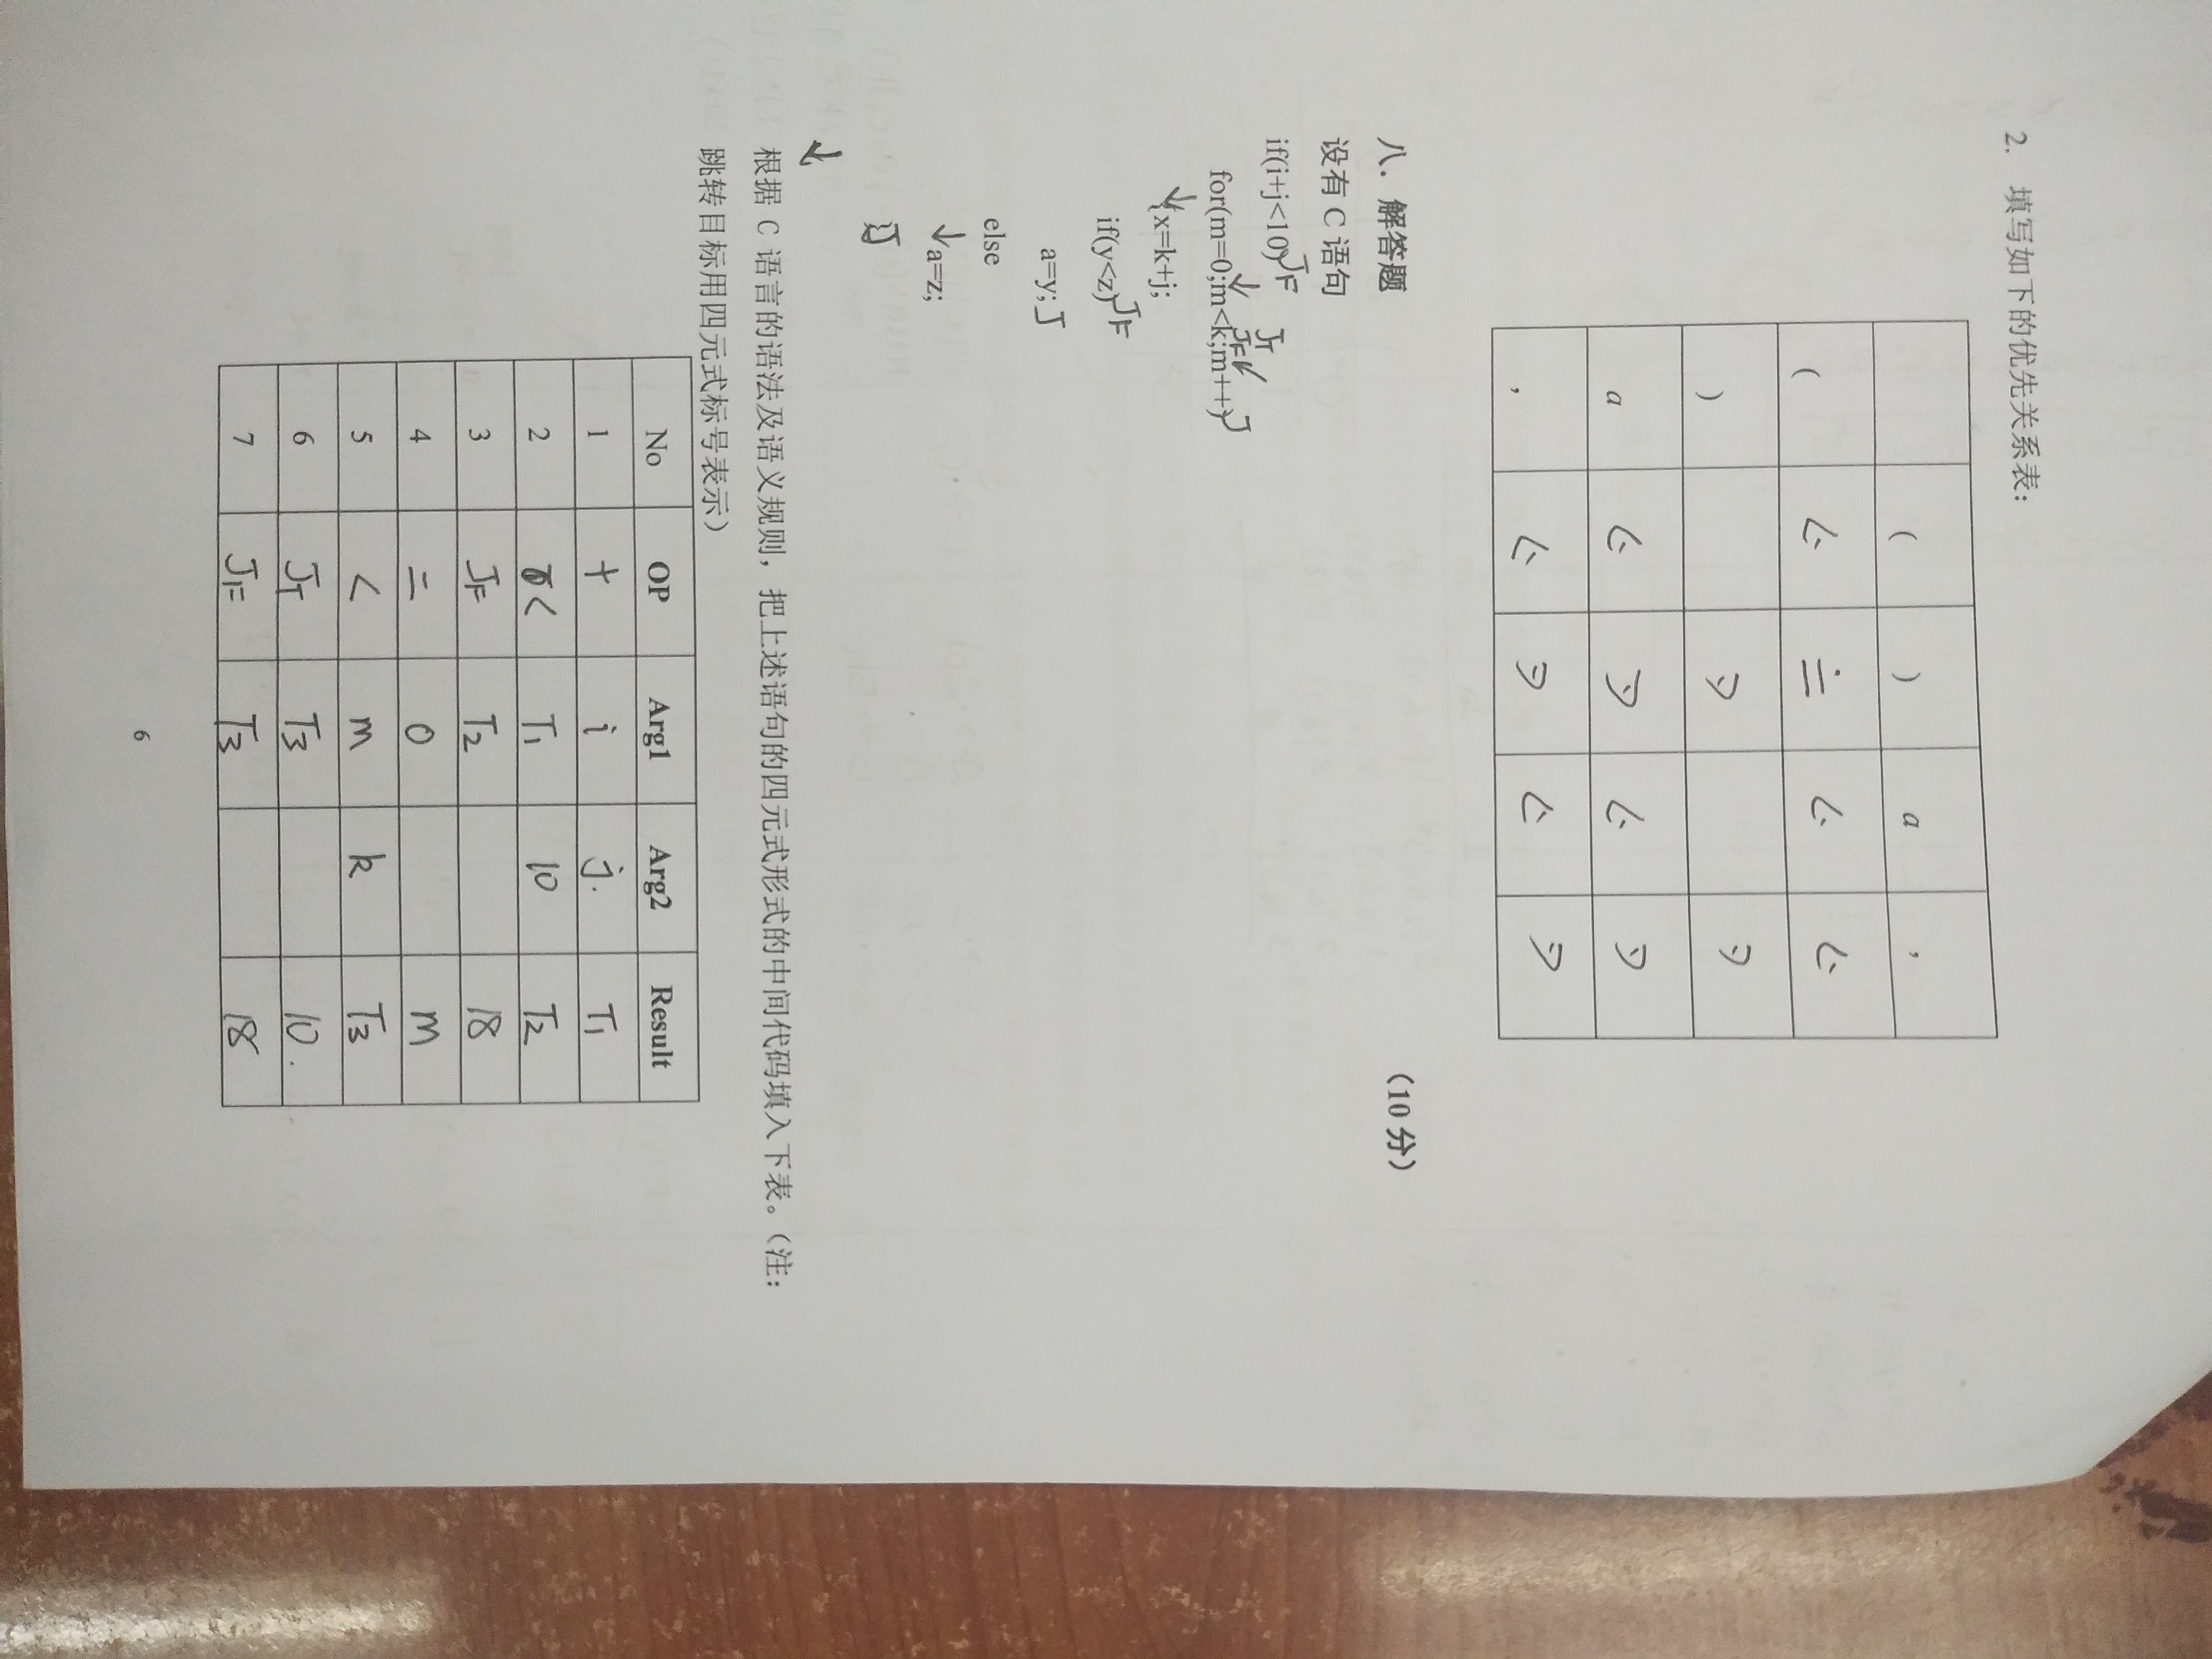 2. 填写如下的优先关系表：
( ) a ,
( ⋖ ≐ ⋖ ⋖
) ⋗ ⋗
a ⋖ ⋗ ⋖ ⋗
, ⋖ ⋗ ⋖ ⋗
八．解答题 （10 分）
设有 C 语句
if(i+j<10) JF
for(m=0;m<k;m++) JT JF J
{x=k+j;
if(y<z) JF
a=y; J
else
a=z;
} J
根据 C 语言的语法及语义规则，把上述语句的四元式形式的中间代码填入下表。（注：
跳转目标用四元式标号表示）
No OP Arg1 Arg2 Result
1 + i j. T1
2 < T1 10 T2
3 JF T2 18
4 = 0 m
5 < m k T3
6 JT T3 10.
7 JF T3 18
6